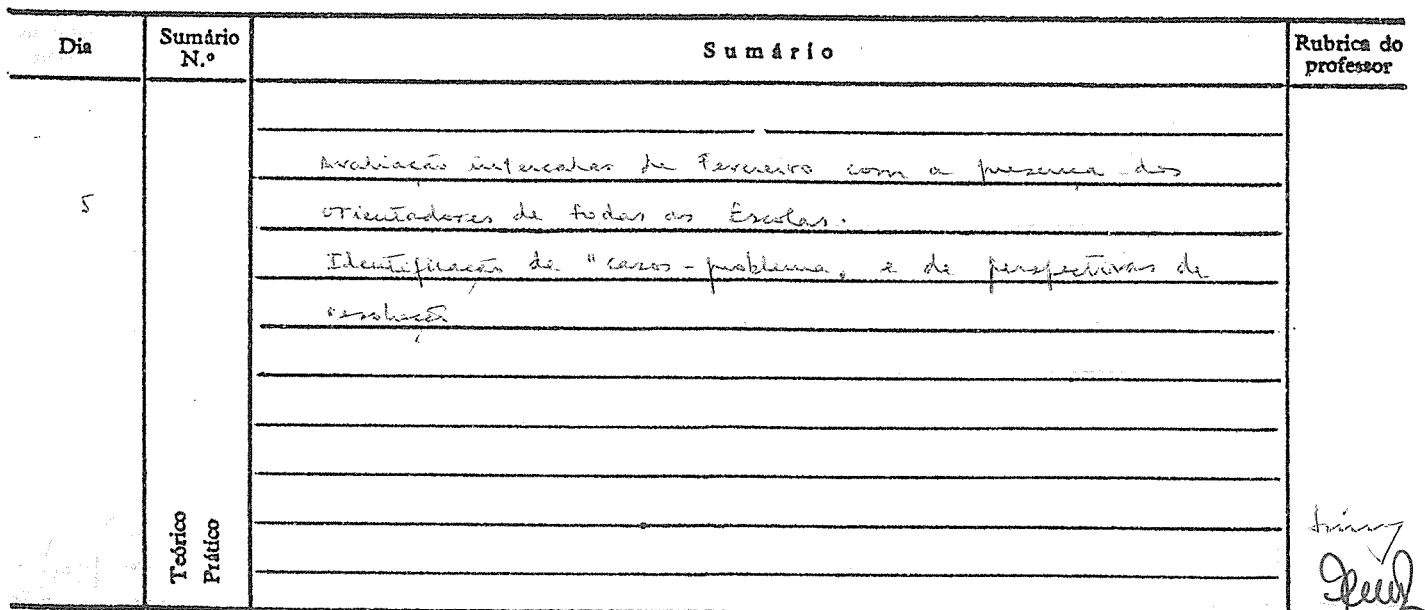 Dia
Sumário N.º
Sumário
Rubrica do professor
Avaliação intercalar de Fevereiro com a presença dos
5
orientadores de todas as Escolas.
Identificação de "casos-problema" e de perspectivas de
resolução
Teórico
Prático